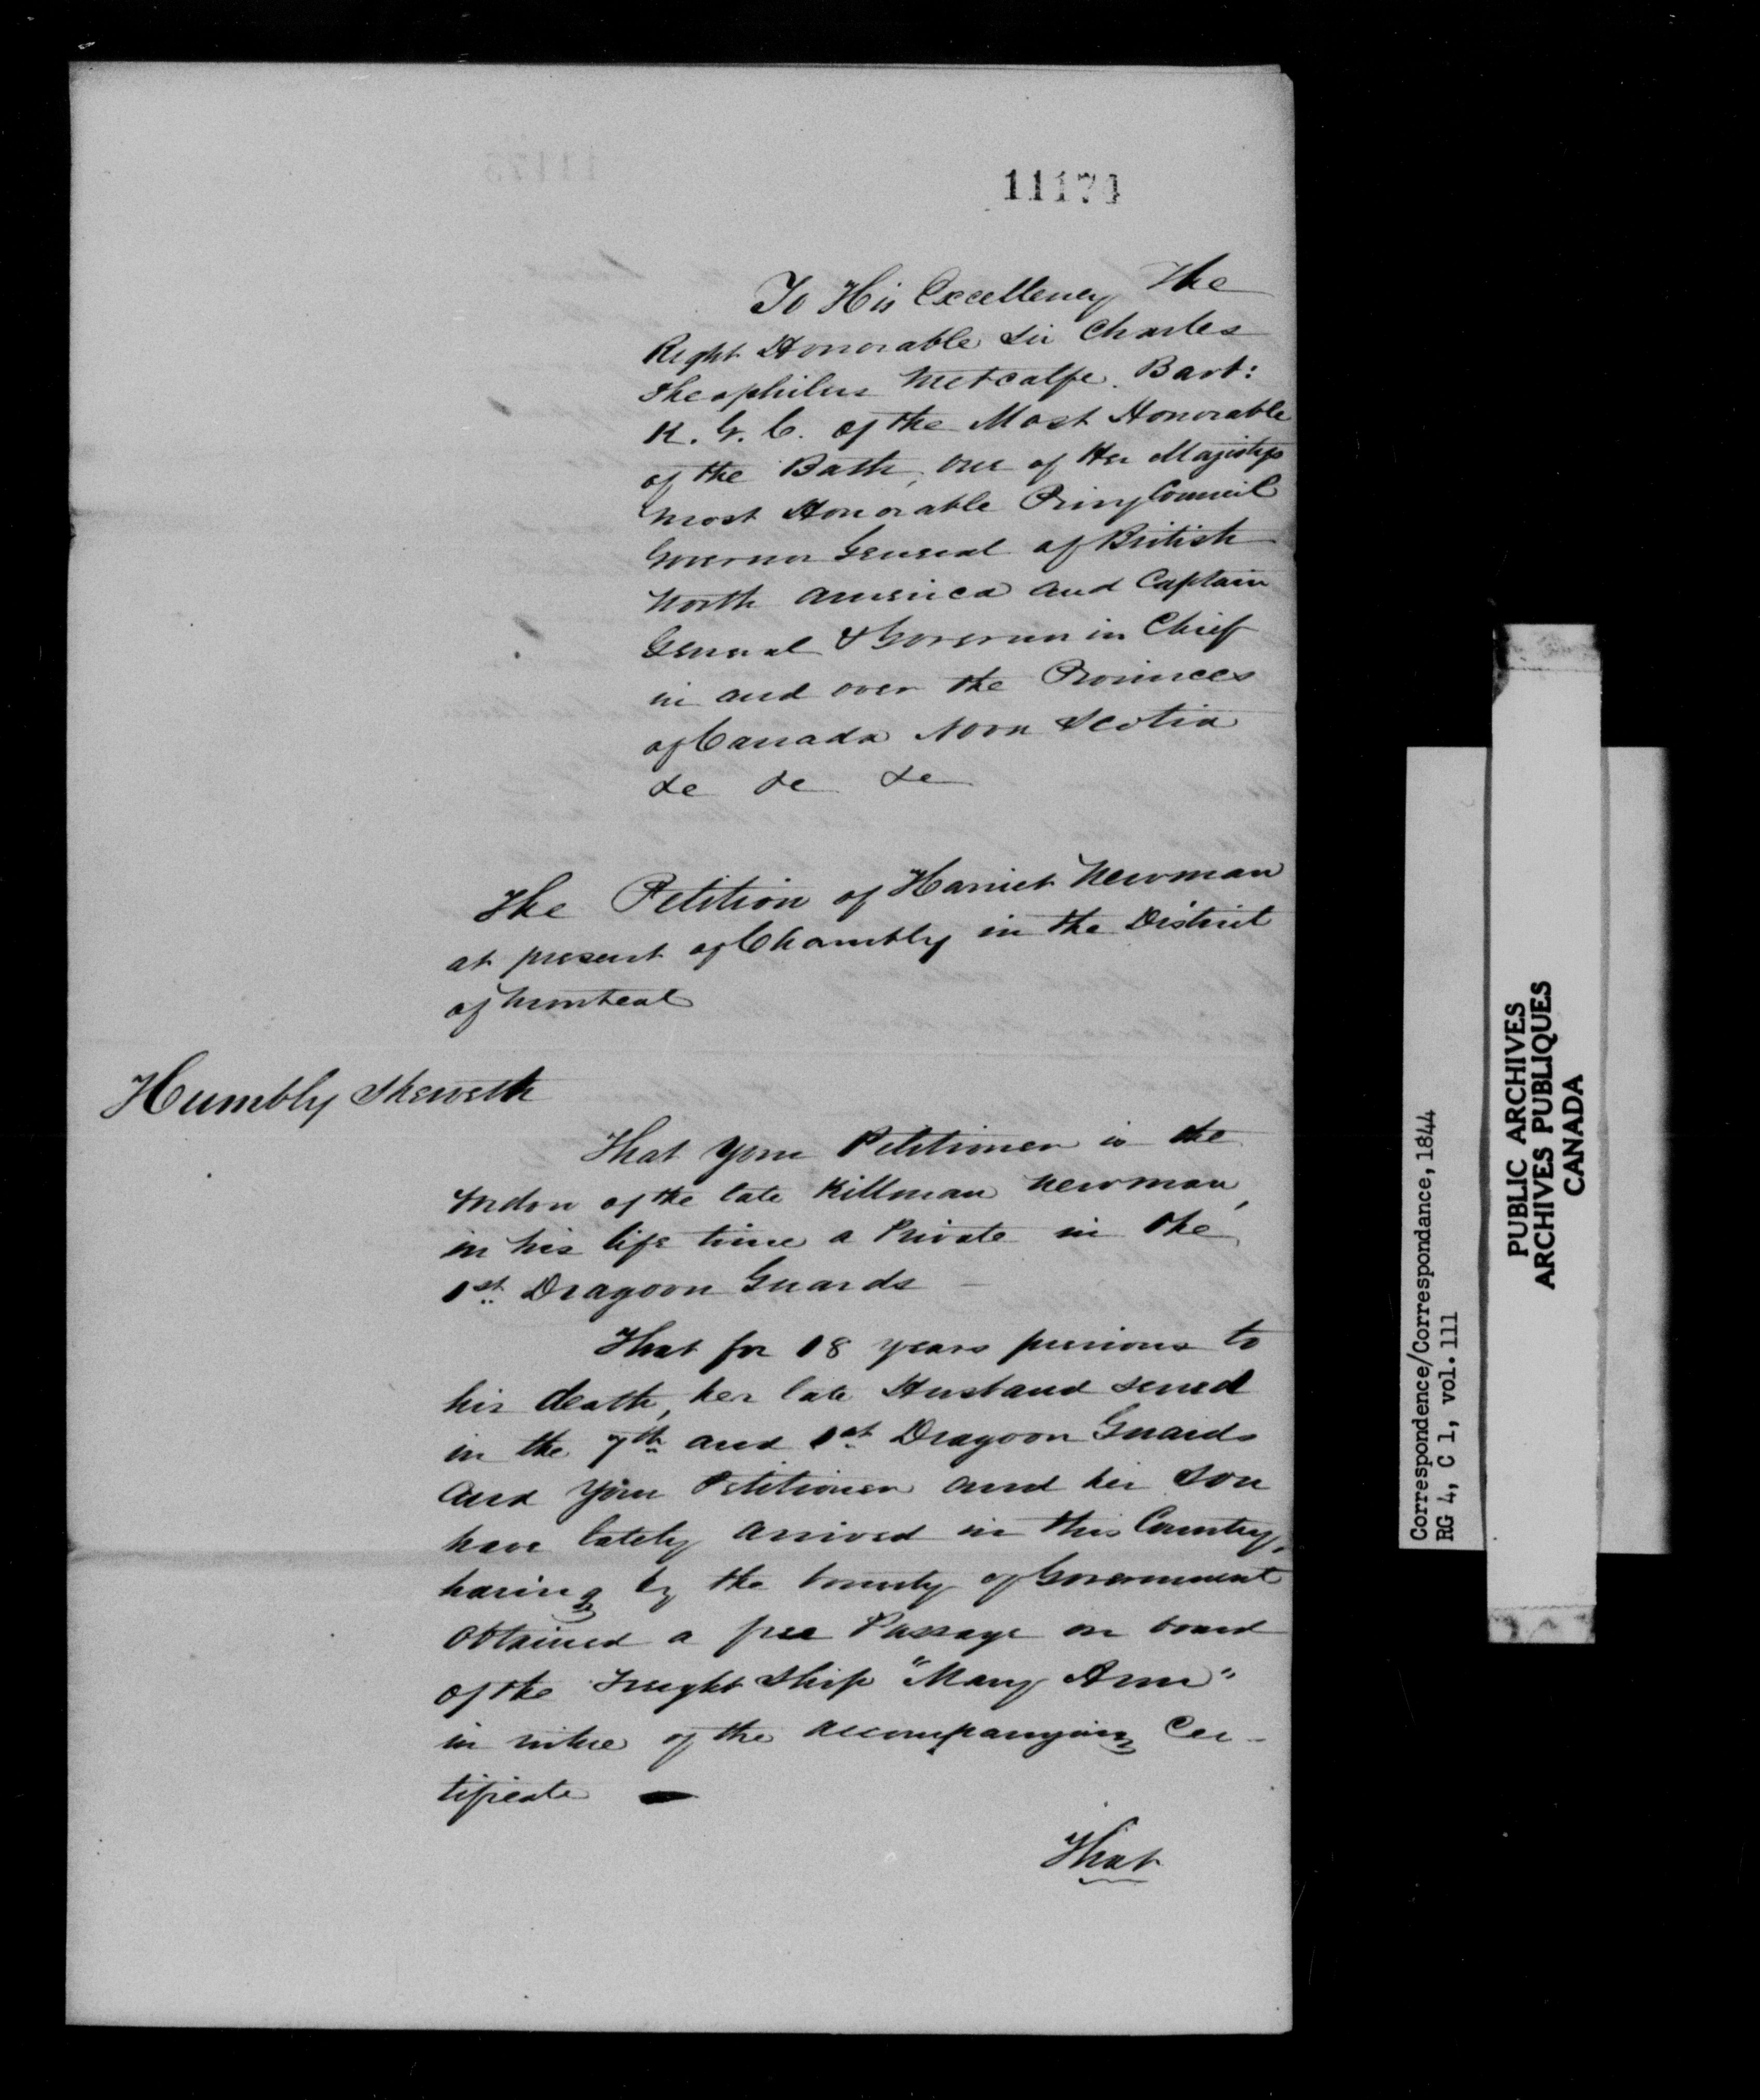 11174
To His Excellency The
Right Honorable Sir Charles
Theophilus Metcalfe. Bart:
K. G. C. of the Most Honorable
of the Bath, one of Her Majestys
most Honorable Privy Council
Governor General of British
North America and Captain
General & Governor in Chief
in and over the Provinces
of Canada Nova Scotia
&c &c &c
The Petition of Harriet Newman
at present of Chambly in the District
of Montreal
Humbly Sheweth
That your Petitioner is the
Widow of the late Killman Newman,
in his life time a Private in the
1st Dragoon Guards —
That for 18 years previous to
his death, her late Husband served
in the 7th and 1st Dragoon Guards
and your Petitioner and her Son
have lately arrived in this Country,
having by the bounty of Government
obtained a free Passage on board
of the Freight Ship "Mary Ann"
in virtue of the accompanying Cer-
tificate —
That
Correspondence/Correspondance, 1844
RG 4, C 1, vol. 111
PUBLIC ARCHIVES
ARCHIVES PUBLIQUES
CANADA